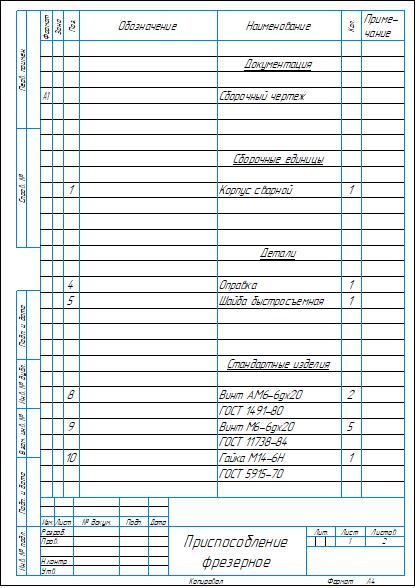 Формат Зона Поз. Обозначение Наименование Кол. Приме-
чание
Документация
А1 Сборочный чертеж
Сборочные единицы
1 Корпус сварной 1
Детали
4 Оправка 1
5 Шайба быстросъемная 1
Стандартные изделия
8 Винт АМ6-6gx20 2
ГОСТ 1491-80
9 Винт М6-6gx20 5
ГОСТ 11738-84
10 Гайка М14-6Н 1
ГОСТ 5915-70
Перв. примен.
Справ. №
Подп. и дата
Инв. № дубл.
Взам. инв. №
Подп. и дата
Инв. № подл.
Изм. Лист № докум. Подп. Дата
Разраб.
Пров.
Н.контр.
Утв.
Приспособление
фрезерное
Лит. Лист Листов
1 2
Копировал Формат А4